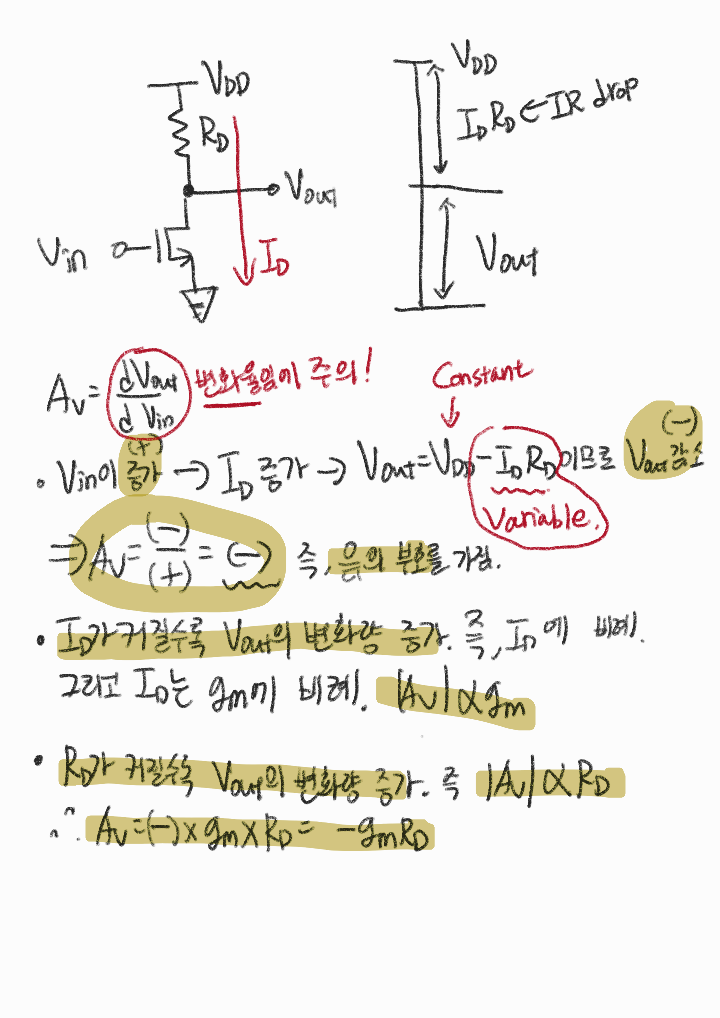 V_DD
R_D
V_out
V_in
I_D
V_DD
I_D R_D ← IR drop
V_out
A_V = dV_out / dV_in 변화율임에 주의!
Constant
• V_in이 증가(+) → I_D 증가 → V_out = V_DD - I_D R_D 이므로 V_out 감소(-)
Variable.
⇒ A_V = (-)/(+) = (-) 즉, 음의 부호를 가짐.
• I_D가 커질수록 V_out의 변화량 증가. 즉, I_D에 비례.
그리고 I_D는 g_m에 비례. |A_V| ∝ g_m
• R_D가 커질수록 V_out의 변화량 증가. 즉 |A_V| ∝ R_D
∴ A_V = (-) × g_m × R_D = -g_m R_D